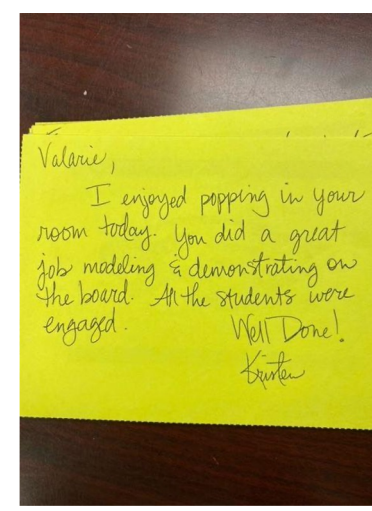 Valarie,
I enjoyed popping in your
room today. You did a great
job modeling & demonstrating on
the board. All the students were
engaged.
Well Done!
Kristen